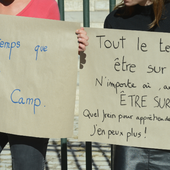 temps que
Camp.
Tout le te
être sur
N'importe où, a
ÊTRE SUR
Quel frein pour appréhender
J'en peux plus !